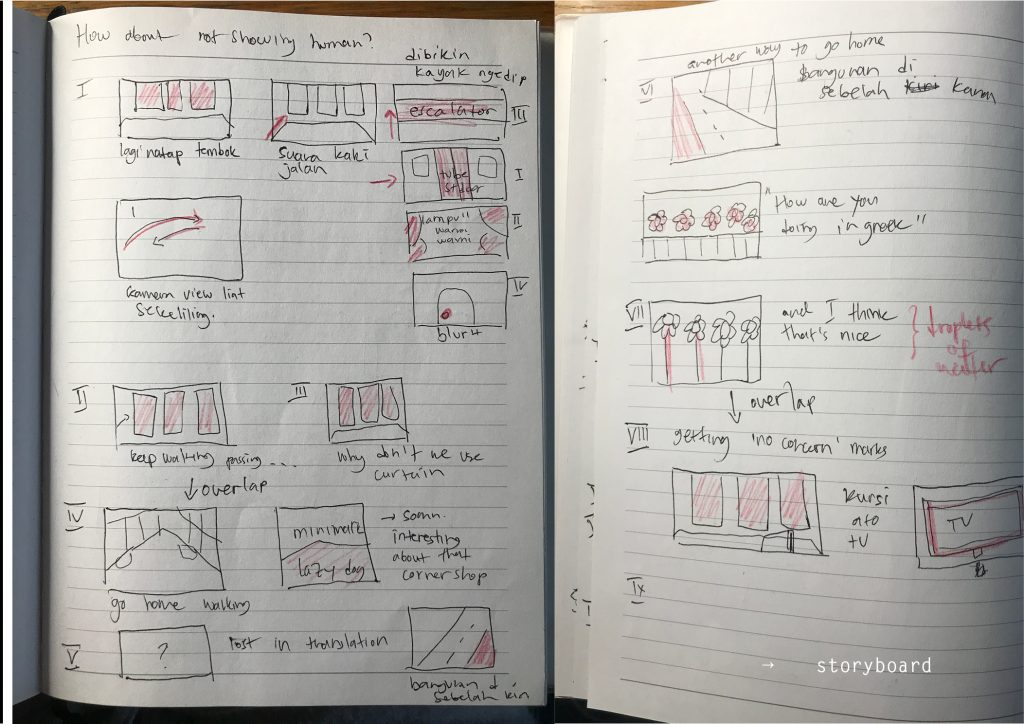 How about not showing human?
dibikin
kayak ngedip
I
lagi natap tembok
suara kaki
jalan
escalator
III
tube
I
lampu"
warna
warni
II
IV
blur 4
1
kamera view liat
sekeliling.
II
keep walking passing ...
III
why don't we use
curtain
↓ overlap
IV
go home walking
minimart
lazy dog
→ somn.
interesting
about that
corner shop
V
?
lost in translation
bangunan d
sebelah kiri
another way to go home
VI
bangunan di
sebelah kiri kanan
"How are you
doing in greek"
VII
and I think
that's nice
} droplets
of
water
↓ overlap
VIII
getting 'no concern' marks
kursi
ato
tv
TV
IX
→ storyboard